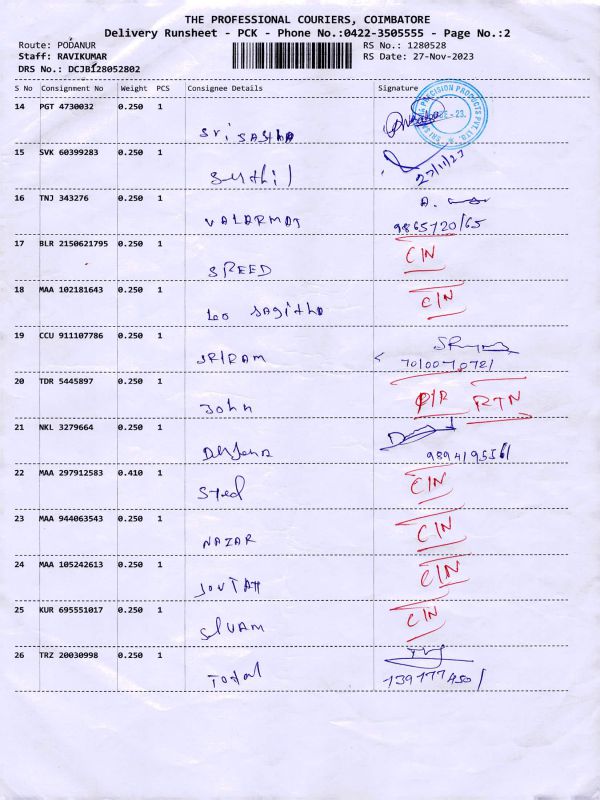 THE PROFESSIONAL COURIERS, COIMBATORE
Delivery Runsheet - PCK - Phone No.:0422-3505555 - Page No.:2
Route: PODANUR RS No.: 1280528
Staff: RAVIKUMAR RS Date: 27-Nov-2023
DRS No.: DCJB128052802
S No Consignment No Weight PCS Consignee Details Signature
14 PGT 4730032 0.250 1
Sri Sastha
15 SVK 60399283 0.250 1
Senthil 27/11/23
16 TNJ 343276 0.250 1
VALARMAT 9865720165
17 BLR 2150621795 0.250 1 CIN
SPEED
18 MAA 102181643 0.250 1 CIN
Leo Sagitha
19 CCU 911107786 0.250 1
SRIRAM
20 TDR 5445897 0.250 1 RTN
John
21 NKL 3279664 0.250 1
22 MAA 297912583 0.410 1 CIN
Syed
23 MAA 944063543 0.250 1 CIN
NAZAR
24 MAA 105242613 0.250 1 CIN
25 KUR 695551017 0.250 1 CIN
SELVAM
26 TRZ 20030998 0.250 1
Total